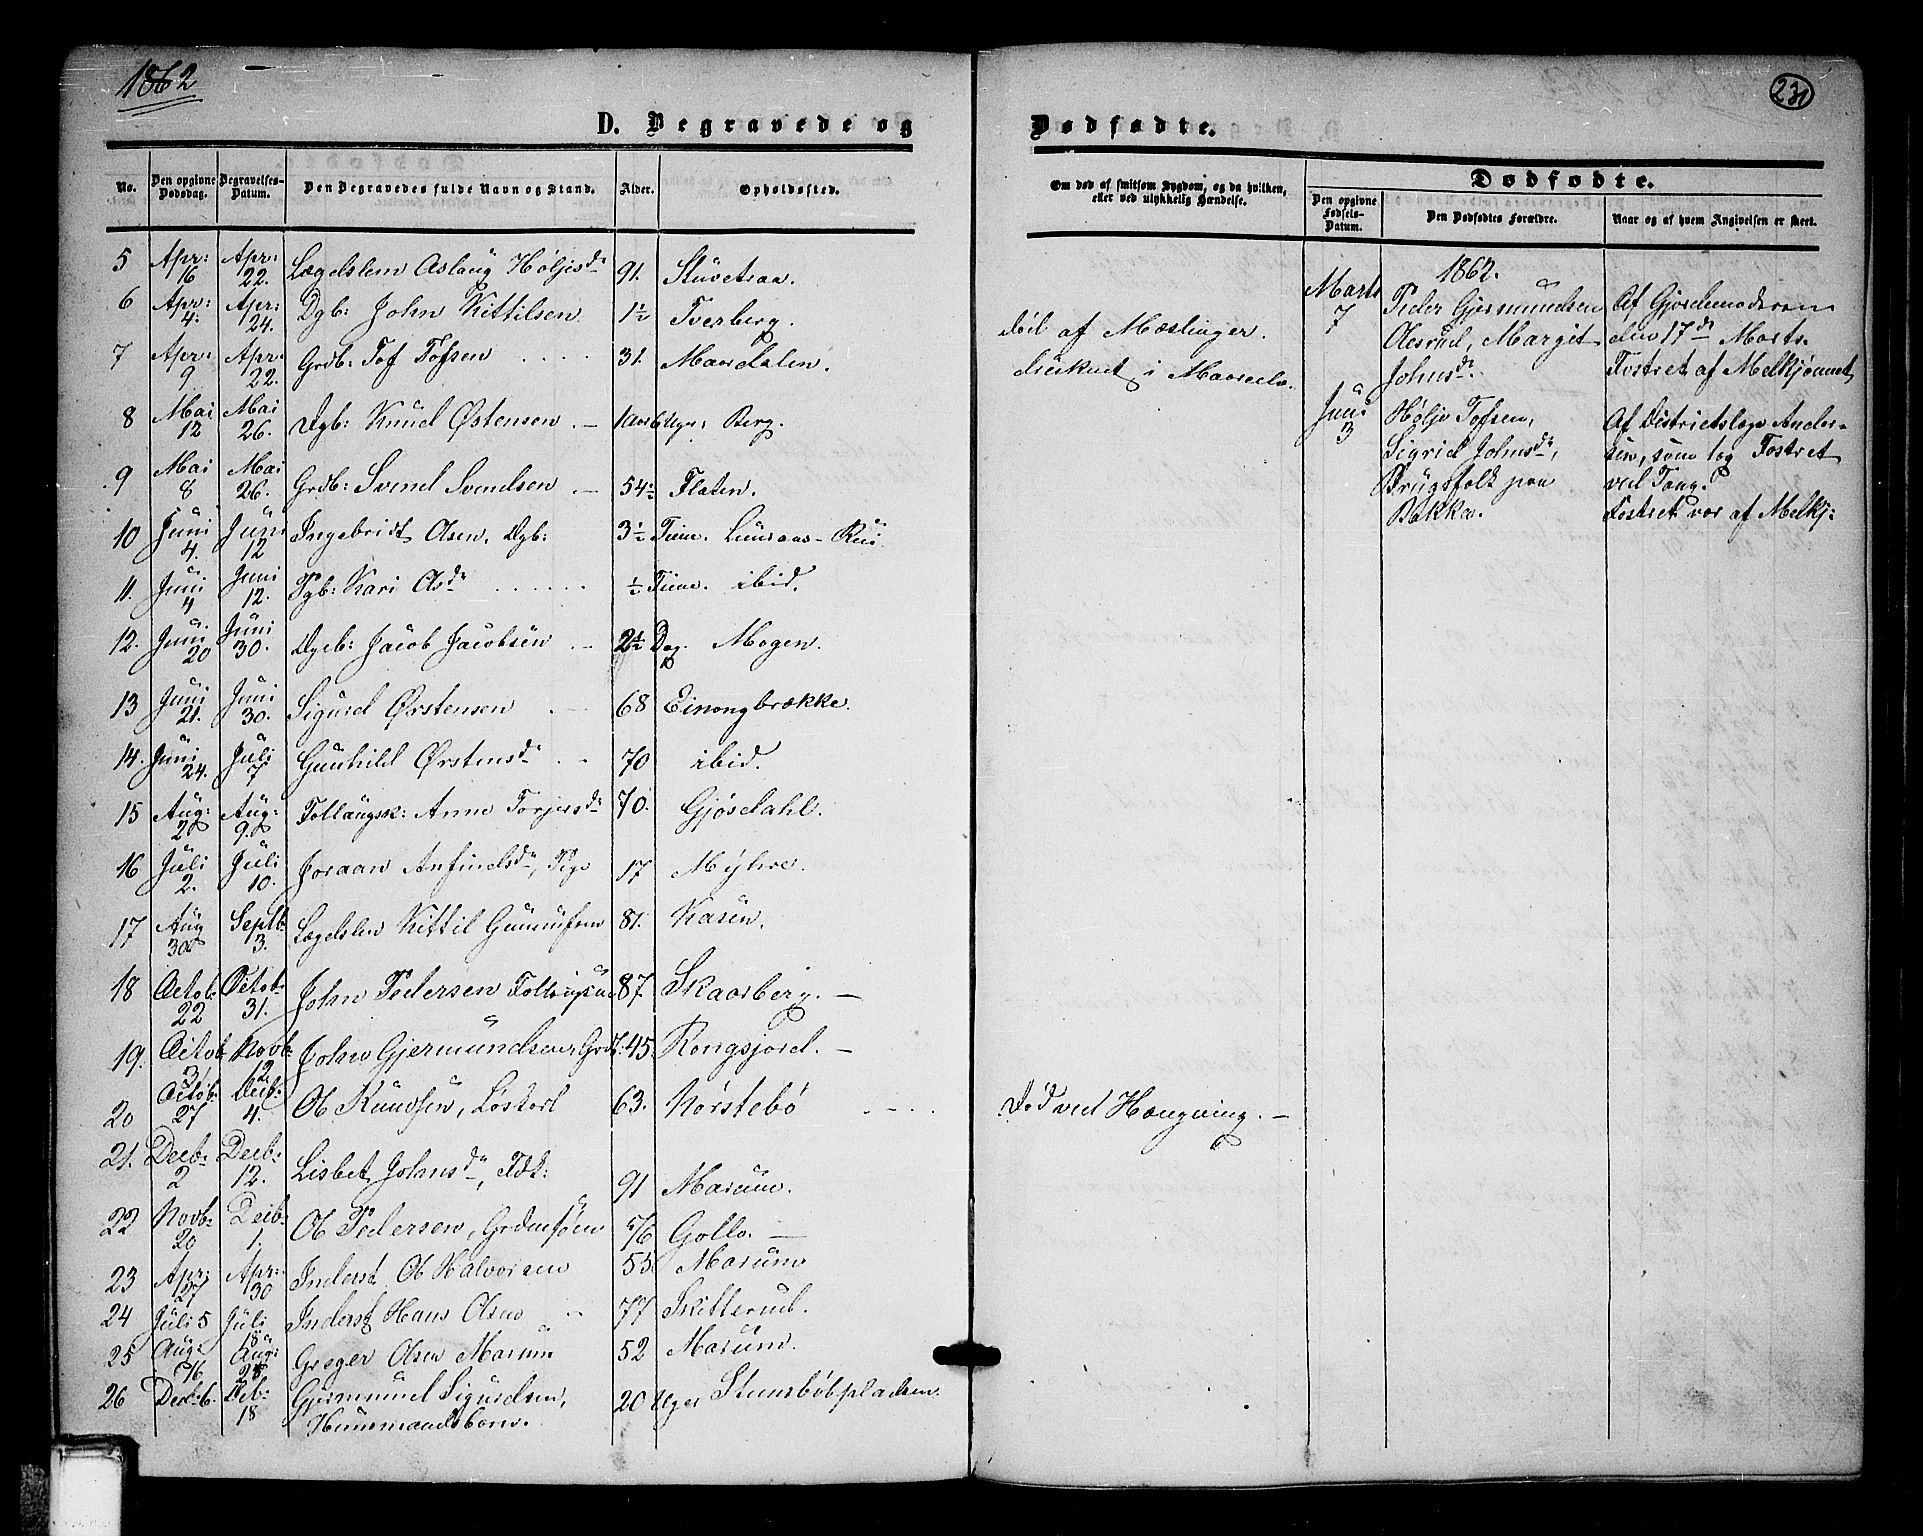 1862
231
D. Begravede og Dødfødte.
No. Den opgivne Dødsdag. Begravelses-Datum. Den Begravedes fulde Navn og Stand. Alder. Opholdssted.
Om død af smitsom Sygdom, og da hvilken, eller ved ulykkelig Hændelse.
Dødfødte.
Den opgivne Fødsels-Datum. Den Dødfødtes Forældre. Naar og af hvem Angivelsen er skeet.
5 Apr: 16 Apr: 22. Lægdslem Aslaug Høljesdr 91. Stuvetraa.
6 Apr: 4. Apr: 24. Dgb: John Kittilsen 1½ Tverberg. død af Mæslinger.
7 Apr: 9 Apr: 22. Grdb: Tof Tofsen 31. Maardalen. druknet i Maarelv.
8 Mai 12 Mai 26. Dgb: Knud Østensen 1 Aar 6 Uger: Berg.
9 Mai 8 Mai 26. Grdb: Svend Svendsen 54½ Flaten.
10 Juni 4. Juni 12 Ingebridt Olsen, Dgb: 3½ Time. Luraas-Rui
11. Juni 4 Juni 12. Pgb: Kari Olsdr ½ Time. ibid.
12. Juni 20 Juni 30. Dgb: Jacob Jacobsen 2½ Dag. Mogen.
13 Juni 21. Juni 30. Sigurd Østensen 68 Einongbrække.
14. Juni 24. Juli 7 Gunhild Østensdr 70 ibid.
15 Aug: 2 Aug: 9. Follaugsk: Anne Torjersdr 70. Gjøsdahl.
16 Juli 2. Juli 10. Joraan Anfindsdr, Pige 17 Myhre.
17 Aug 30 Septb: 3. Lægdslem Kittil Gunnufsen 81. Kasin.
18 Octob: 22 Octob: 31. John Pedersen 87. Skaarberg.
19. Octob: 31 Novb: 12 John Gjermundsen Grdb: 45. Rongsjord.
20 Octob: 27 Decb: 4. Ol Knudsen, Løskarl 63. Norstebø Død ved Hængning.
21. Decb: 2 Decb: 12. Lisbet Johnsdr, Fdk: 91 Marum.
22 Novb: 20 Decb: 1. Ol Pedersen, 76 Gollo.
23 Apr: 27 Apr: 30 Inderst Ol Halvorsen 55 Marum
24 Juli 5 Juli 18 Inderst Hans Olsen 77 Skitterud.
25 Aug: 16 Aug: 28 Greger Olsen Marum 52 Marum.
26 Decb 6. Decb: 18 Gjermund Sigurdsen, 20 Uger
Huusmandsbarn.
1862.
Marts 7 Peder Gjermundsen Af Gjordemoderen
Olesrud, Margit den 17de Marts.
Johnsdr. Fostret af Melkjønnet
Juni 3 Hølje Tofsen, Af Districtslæge Ander-
Sigrid Johnsdr, sen, som tog Fostret
Brugsfolk paa ved Tang.
Bakka. Fostret var af Melkj: